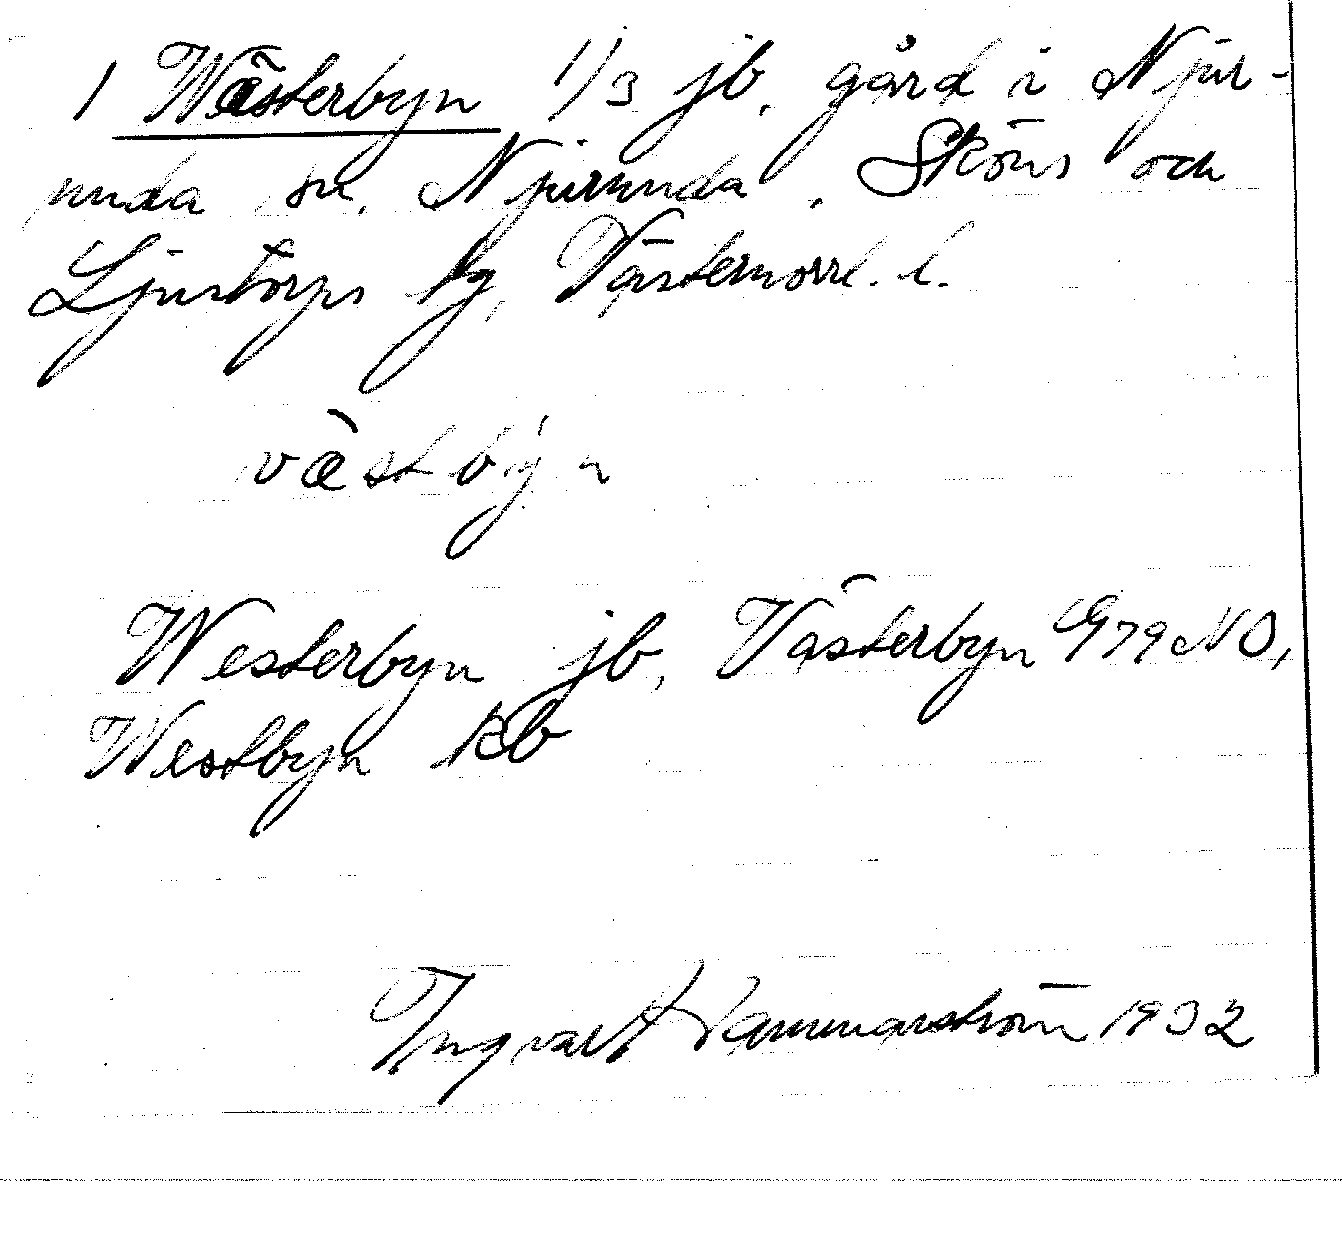 1 Wästerbyn 1/3 jb, gård i Njur-
unda sn, Njurunda, Sköns och
Ljustorps tg, Västernorrl. l.
və̀stbýn
Westerbyn jb, Västerbyn G79NO,
Westbyn kb
Ingvar Hammarström 1932